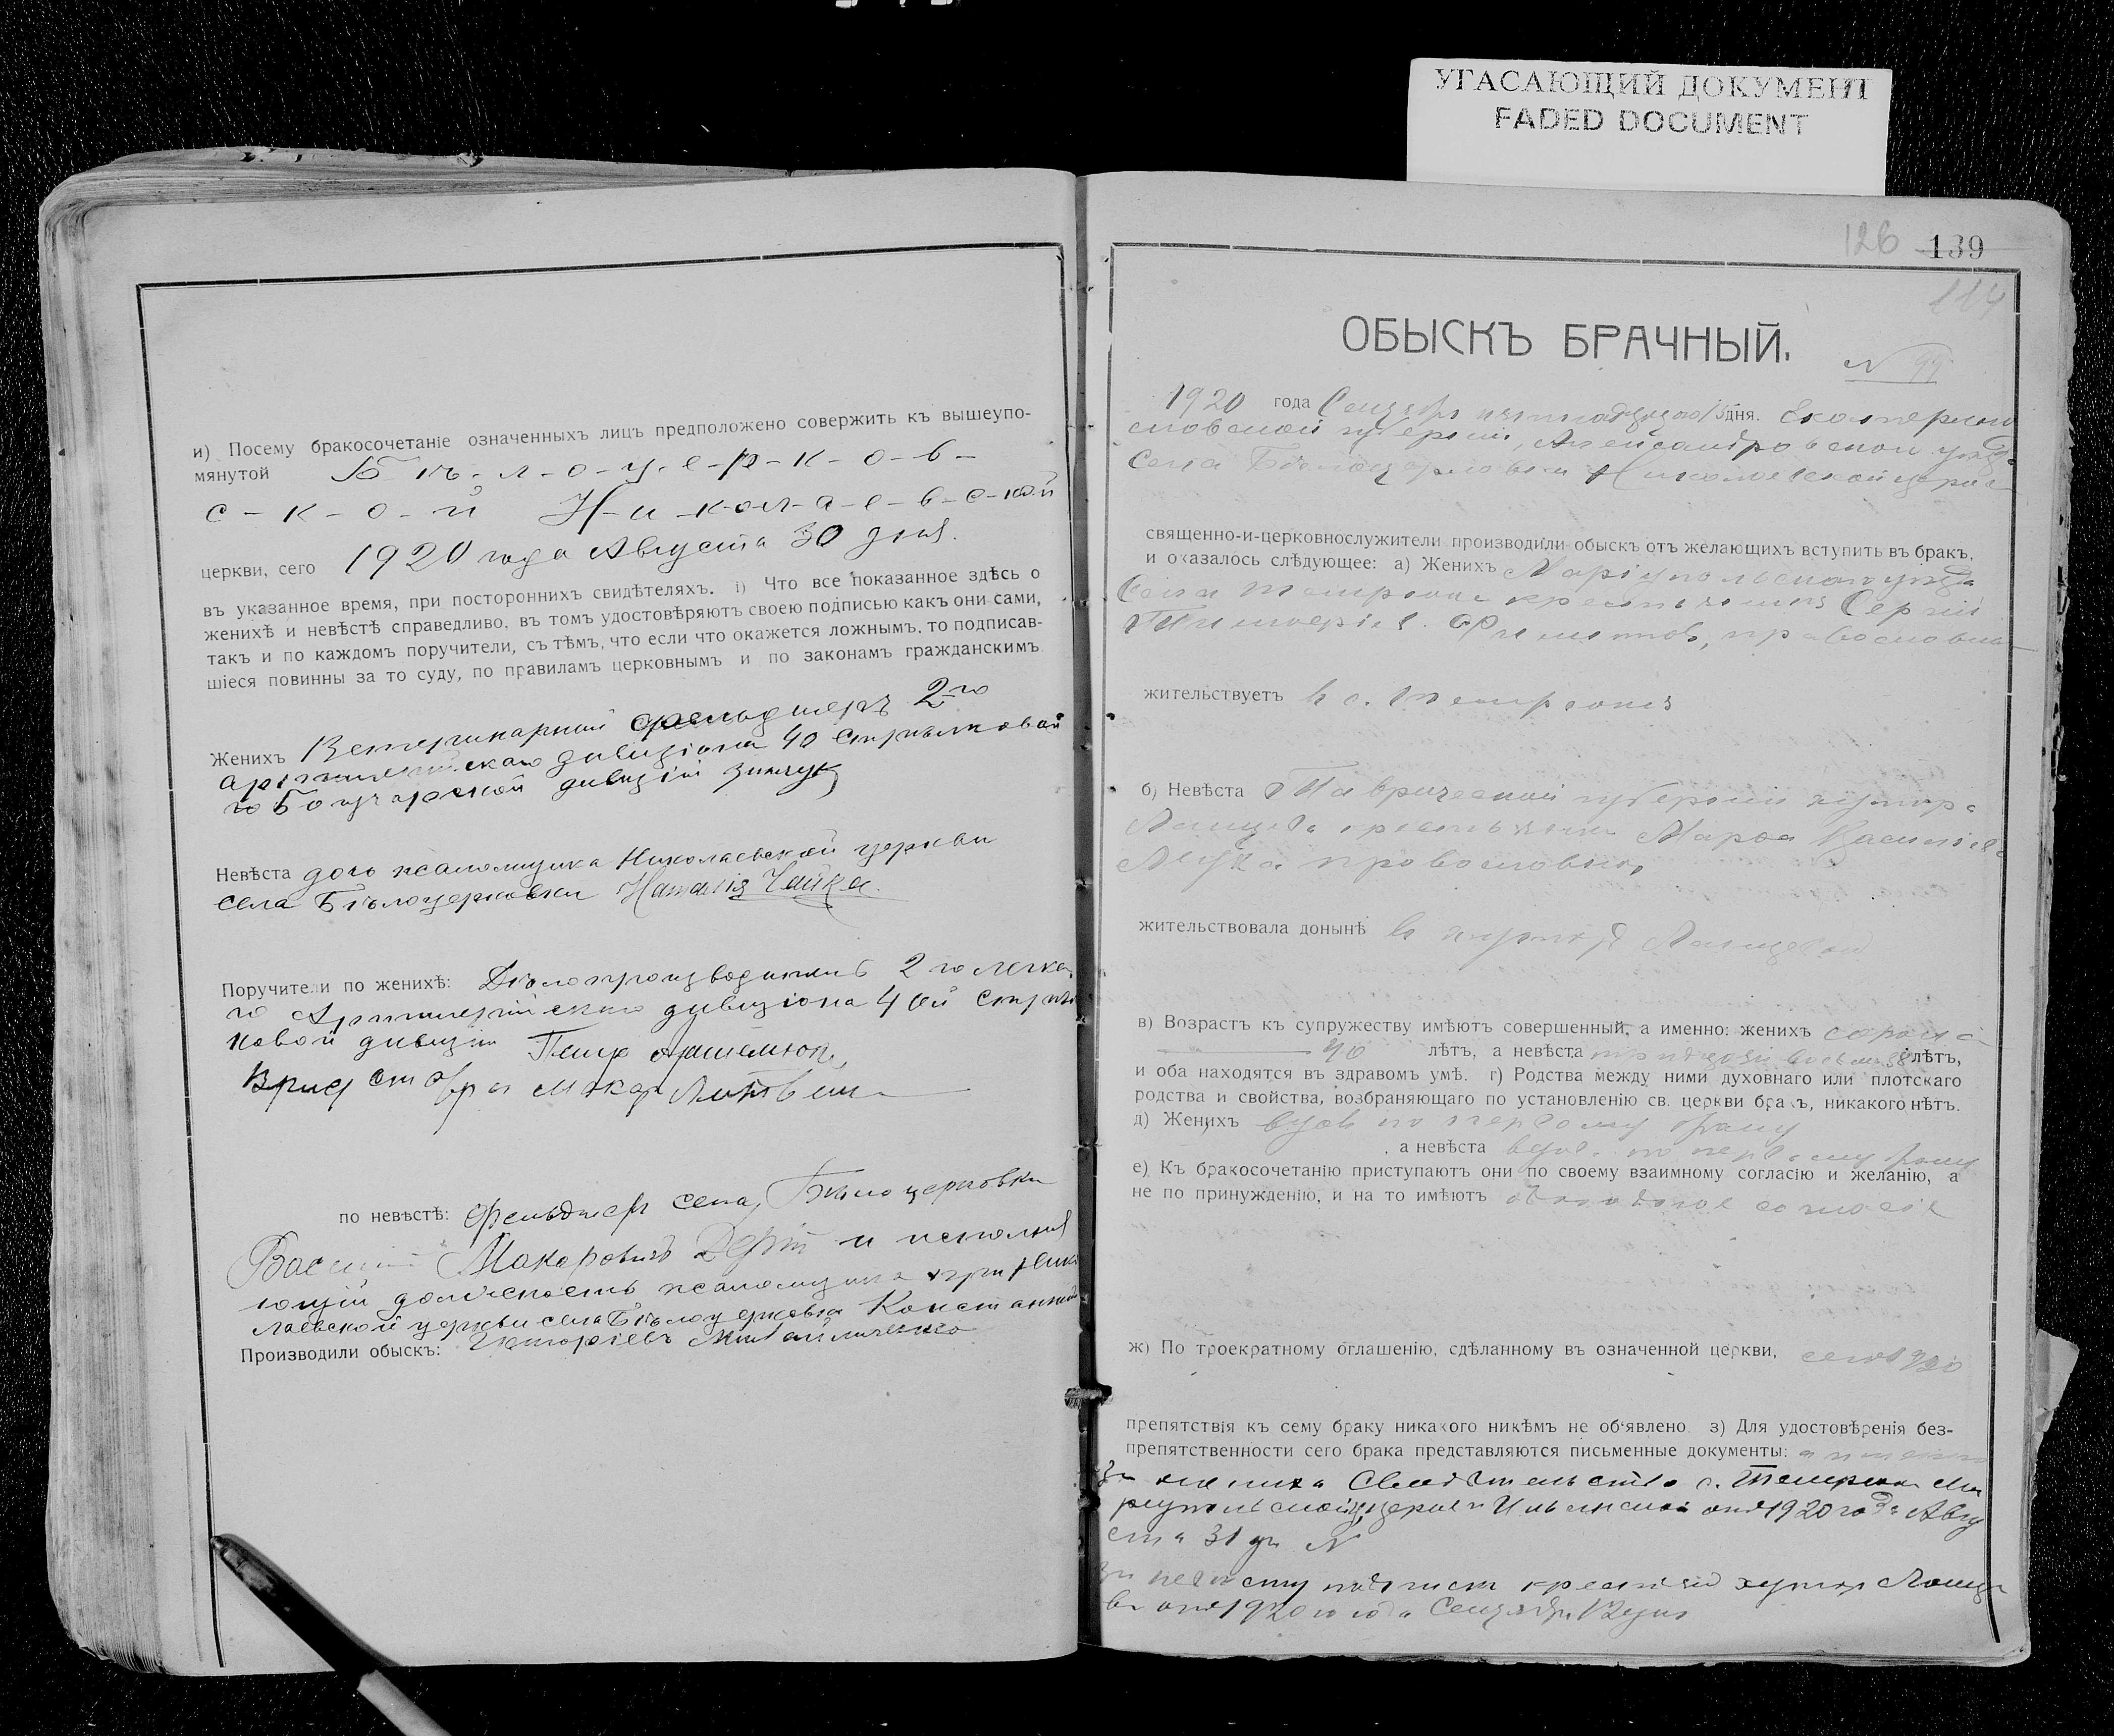 УГАСАЮЩИЙ ДОКУМЕНТ
FADED DOCUMENT
и) Посему бракосочетаніе означенныхъ лицъ предположено совержить къ вышеупо-
мянутой Б-ѣ-л-о-ц-е-р-к-о-в-
с-к-о-й Н-и-к-о-л-а-е-в-с-кой
церкви, сего 1920 года Августа 30 дня.
въ указанное время, при постороннихъ свидѣтеляхъ. і) Что все показанное здѣсь о
женихѣ и невѣстѣ справедливо, въ томъ удостовѣряютъ своею подписью какъ они сами,
такъ и по каждомъ поручители, съ тѣмъ, что если что окажется ложнымъ, то подписав-
шіеся повинны за то суду, по правиламъ церковнымъ и по законамъ гражданскимъ
Женихъ Ветеринарный фельдшеръ 2-го
артиллерійскаго дивизіона 40 Стрѣлковой
дивизіи
Невѣста дочь псаломщика Николаевской церкви
села Бѣлоцерковки Наталія Чайка
Поручители по женихѣ: Дѣлопроизводитель 2 го легка
го Артиллерійскаго дивизіона 40й Стрѣл
ковой дивизіи Петр
Макар Литвин
по невѣстѣ: Фельдшер села Бѣлоцерковки
Василий Макаровичъ и исполня
ющій должность псаломщика при Нико
лаевской церкви села Бѣлоцерковки Константин
Производили обыскъ: Григоріевъ Михайличенко
126 139
114
ОБЫСКЪ БРАЧНЫЙ.
N 99
1920 года Сентября пятнадцатого 15 дня. Екатерино
славской губерніи, Александровскои уѣзд
села Бѣлоцерковки Николаевской церкв
священно-и-церковнослужители производили обыскъ отъ желающихъ вступить въ бракъ,
и оказалось слѣдующее: а) Женихъ Маріупольскаго уѣзда
села Темрюка крестьянинъ Сергій
православна
жительствуетъ в с. Темрюкѣ
б) Невѣста Таврической губерніи хутора
крестьянка Марфа Василіев
православная
жительствовала донынѣ в хуторѣ
в) Возрастъ къ супружеству имѣютъ совершенный, а именно: женихъ сорока
40 лѣтъ, а невѣста тридцати восьми 38 лѣтъ,
и оба находятся въ здравомъ умѣ. г) Родства между ними духовнаго или плотскаго
родства и свойства, возбраняющаго по установленію св. церкви бракъ, никакого нѣтъ.
д) Женихъ вдов по первому браку
, а невѣста вдова по первому браку
е) Къ бракосочетанію приступаютъ они по своему взаимному согласію и желанію, а
не по принужденію, и на то имѣютъ обоюдное согласіе
ж) По троекратному оглашенію, сдѣланному въ означенной церкви, сего 1920
препятствія къ сему браку никакого никѣмъ не объявлено з) Для удостовѣренія без-
препятственности сего брака представляются письменные документы: а именно
За жениха Свидѣтельство с. Темрюка Ма
риупольской церкви от 1920 года Авгу
ста 31 дн N
За невесту подписка крестьян хутор
от 1920 го года Сентября